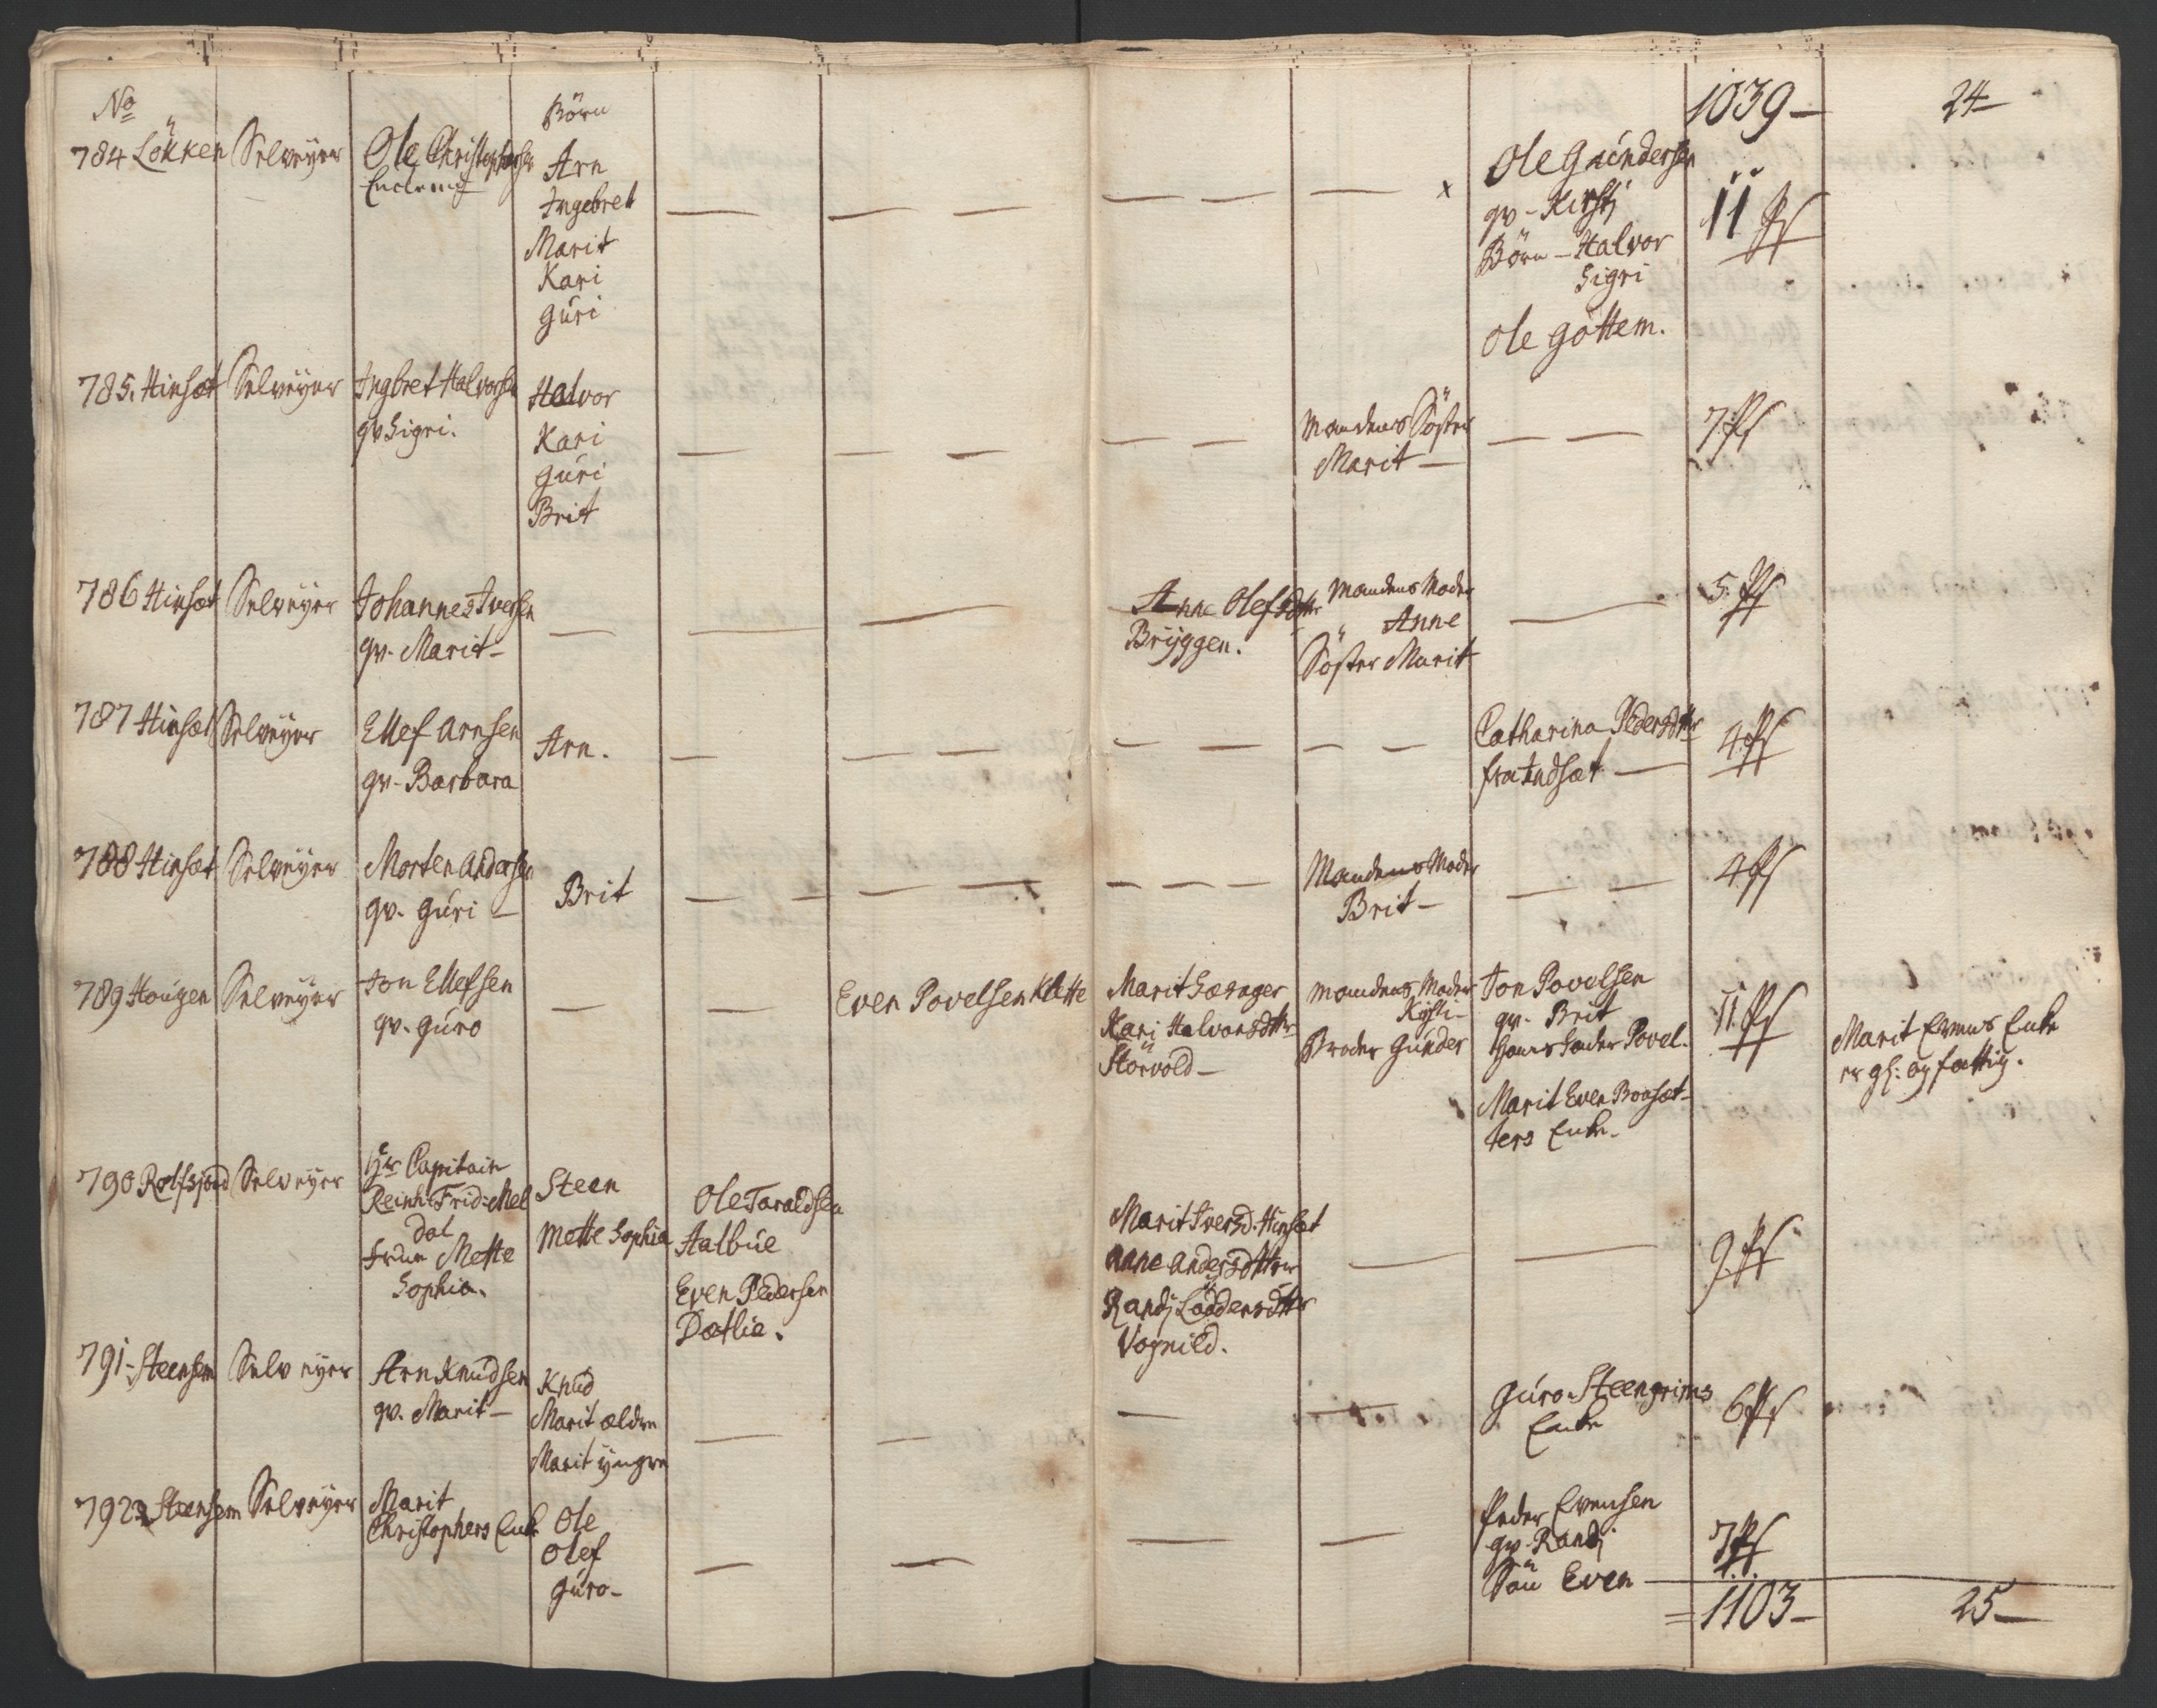 No
Börn
1039 –
24 –
784 Lökken Selveyer Ole Christophersen
Arn
Ingebret
Marit
Kari
Guri
x Ole Gundersen
qv – Kirstj
Börn – Halvor
Sigri
Ole Gottem.
11 Ps
785. Hinsæt Selveyer Ingbret Halvorsen
qv Sigri.
Halvor
Kari
Guri
Brit
Mandens Söster
Marit –
7 Ps
786 Hinsæt Selveyer Johannes Iversen
qv. Marit –
Anne Olefsdttr
Bryggen.
Mandens Moder
Anne
Söster Marit
5 Ps
787 Hinsæt Selveyer Ellef Arnsen
qv. Barbara
Arn.
Catharina Pedersdttr
fra Indsæt
4 Ps
788 Hinsæt Selveyer Morten Andersen
qv. Guri –
Brit
Mandens Moder
Brit –
4 Ps
789 Hougen Selveyer Jon Ellefsen
qv. Guro
Even Povelsen Klette
Marit Sæsager
Kari Halvorsdttr
Storvold –
Mandens Moder
Kisti –
Broder Gunder
Jon Povelsen
qv. Brit
Hans Fader Povel.
Marit Even Boasæt-
ters Enke.
11 Ps
Marit Evens Enke
er gl: og fattig.
790 Rolfsjord Selveyer Hr Capitain
Reinh: Frid: Mel
dal
Frue Mette
Sophia.
Steen
Mette Sophia
Ole Taraldsen
Aalbue
Even Pedersen
Dætlie.
Marit Iversd. Hinsæt
Anne Andersdttr
Randj Loddensdttr
Vognild.
9 Ps
791 – Steensem Selveyer Arn Knudsen
qv. Marit –
Knud
Marit ældre
Marit yngre
Guro Steengrims
Enke
6 Ps
792 Steensem Selveyer Marit
Christophers Enke
Ole
Olef
Guro –
Peder Evensen
qv. Randj
Sön Even
7 Ps
= 1103 –
25 –